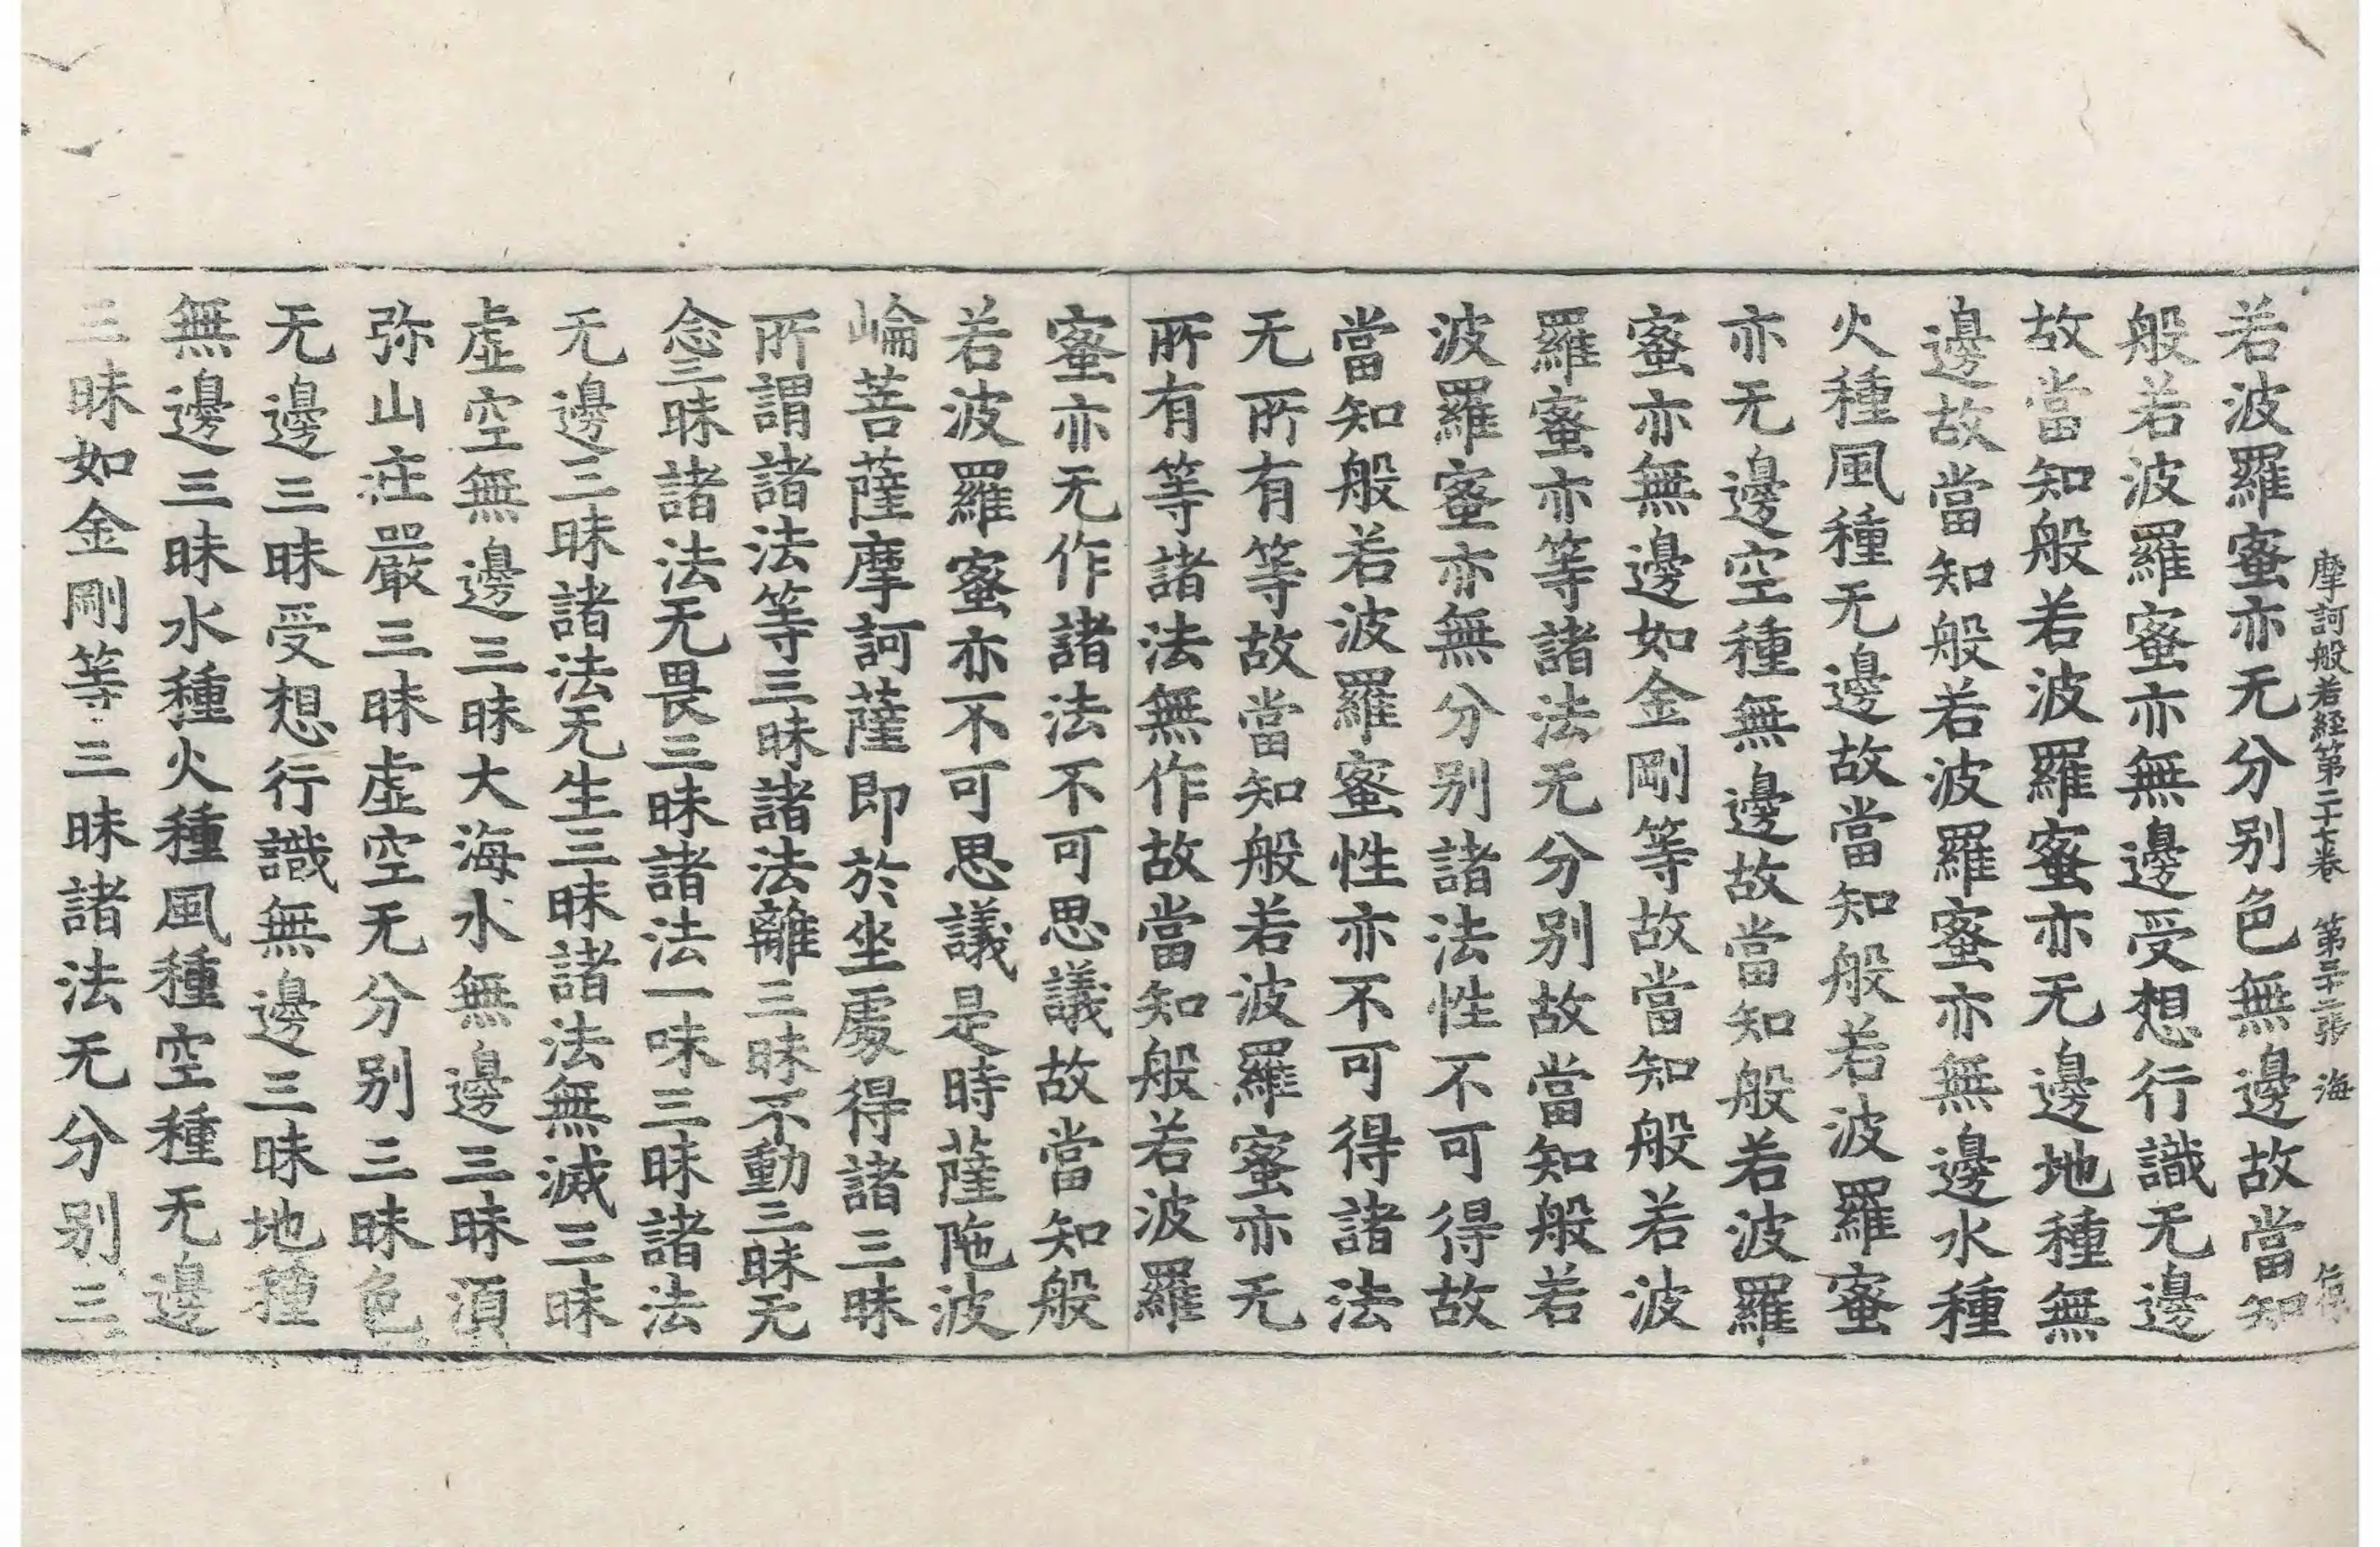 摩訶般若經第二十七卷　第三十二張　海
若波羅蜜亦无分别色無邊故當知
般若波羅蜜亦無邊受想行識无邊
故當知般若波羅蜜亦无邊地種無
邊故當知般若波羅蜜亦無邊水種
火種風種无邊故當知般若波羅蜜
亦无邊空種無邊故當知般若波羅
蜜亦無邊如金剛等故當知般若波
羅蜜亦等諸法无分别故當知般若
波羅蜜亦無分别諸法性不可得故
當知般若波羅蜜性亦不可得諸法
无所有等故當知般若波羅蜜亦无
所有等諸法無作故當知般若波羅
蜜亦无作諸法不可思議故當知般
若波羅蜜亦不可思議是時薩陁波
崘菩薩摩訶薩即於坐處得諸三昧
所謂諸法等三昧諸法離三昧不動三昧无
念三昧諸法无畏三昧諸法一味三昧諸法
无邊三昧諸法无生三昧諸法無滅三昧
虛空無邊三昧大海水無邊三昧湏
弥山庄嚴三昧虛空无分别三昧色
无邊三昧受想行識無邊三昧地種
無邊三昧水種火種風種空種无邊
三昧如金剛等三昧諸法无分别三